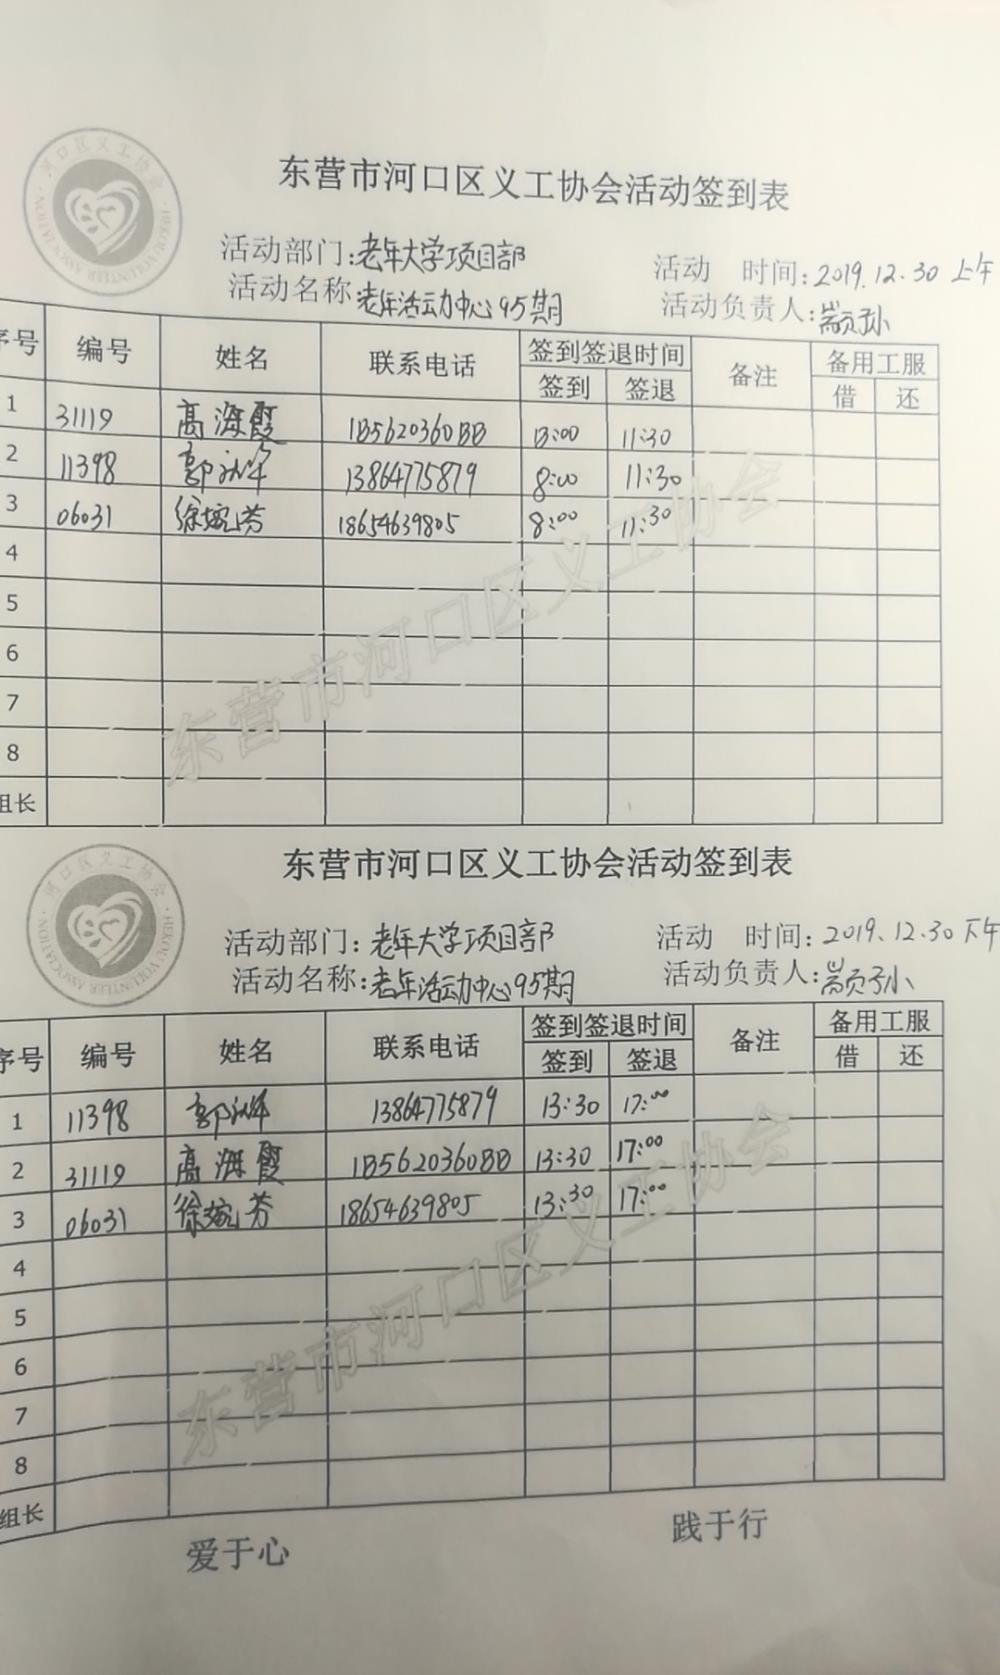 河口区义工协会
HEKOU VOLUNTEER ASSOCIATION
东营市河口区义工协会活动签到表
活动部门:老年大学项目部 活动 时间:2019.12.30 上午
活动名称:老年活动中心95期 活动负责人:
序号 编号 姓名 联系电话 签到签退时间 备注 备用工服
签到 签退 借 还
1 31119 高海霞 18562036088 8:00 11:30
2 11398 郭 13864775879 8:00 11:30
3 06031 徐婉芳 18654639805 8:00 11:30
4
5
6
7
8
组长
东营市河口区义工协会
河口区义工协会
HEKOU VOLUNTEER ASSOCIATION
东营市河口区义工协会活动签到表
活动部门:老年大学项目部 活动 时间:2019.12.30 下午
活动名称:老年活动中心95期 活动负责人:
序号 编号 姓名 联系电话 签到签退时间 备注 备用工服
签到 签退 借 还
1 11398 郭 13864775879 13:30 17:00
2 31119 高海霞 18562036088 13:30 17:00
3 06031 徐婉芳 18654639805 13:30 17:00
4
5
6
7
8
组长
东营市河口区义工协会
爱于心 践于行